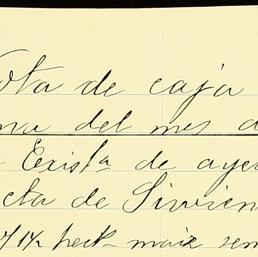 ota de caja
na del mes d
Exist.ª de aye
cta de Sirvien
hect. maiz sem